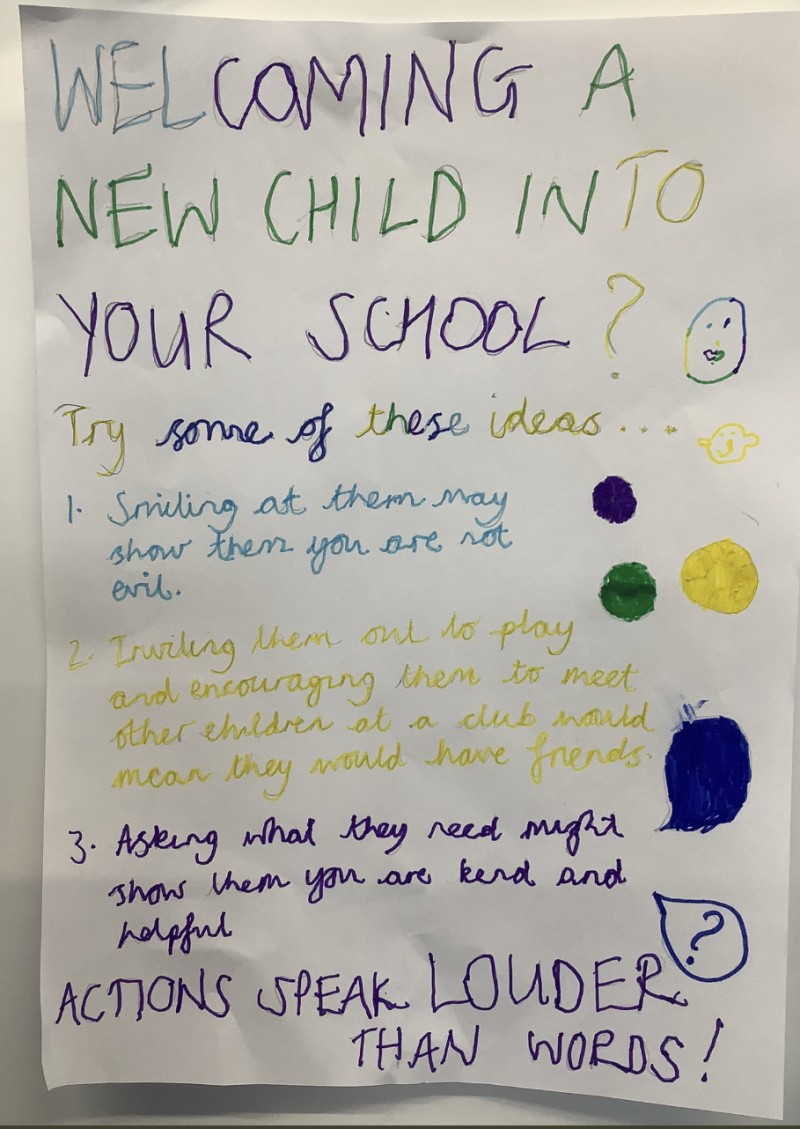 WELCOMING A
NEW CHILD INTO
YOUR SCHOOL?
Try some of these ideas...
1. Smiling at them may
show them you are not
evil.
2. Inviting them out to play
and encouraging them to meet
other children at a club would
mean they would have friends.
3. Asking what they need might
show them you are kend and
helpful
?
ACTIONS SPEAK LOUDER
THAN WORDS!